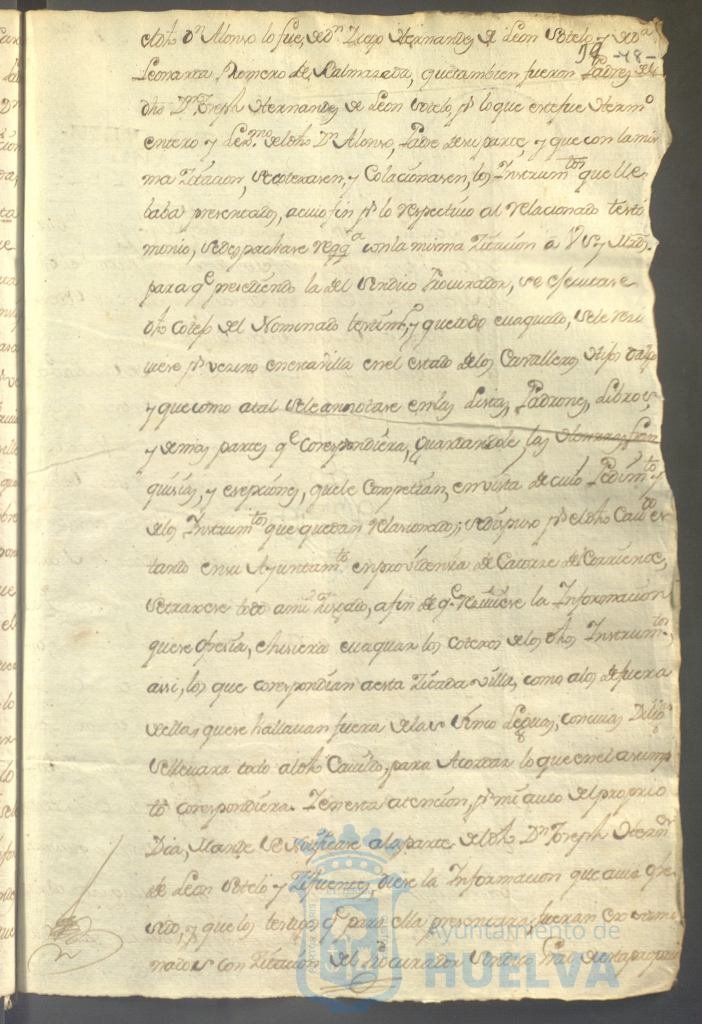 dho Dn Alonso lo fue, de Dn Diego Hernandes de Leon Sotelo y de Da
94 -48-
Leonarda Romero de Balmaseda, que tambien fueron Padres del
dho Dn Joseph Hernandes de Leon Sotelo, pr lo que este fue Hermo
entero y Lexmo de dho Dn Alonso, Padre de su parte, y que con la mis
ma Zitacion, se cotexasen, y Colacionasen, los Instrumtos que lle
baba presentados, a cuio fin pr lo respectivo al relacionado testi
monio, se despachase reqqa con la misma Zitacion a V. S. y Mrds.
para qe presediendo la del Sindico Procurador, se efecutase
dho cotejo del Nominado testimo, y que todo evaquado, se le resi
viese pr vezino en esta villa en el estado de los Cavalleros Hijos dalgo
y que como a tal se le annotase en las Listas, Padrones, Libros,
y demas partes qe corespondiera, Guardandole las Honrras, fran
quisias, y esepsiones, que le Competian, en vista de cuio Pedimto y
de los Instrumtos que quedan relasionados, se dispuso pr el dho Cavdo es
tando en su Ayuntamto en providensia de Catorze de Corriente,
se traxese todo a mi Juzgado, a fin de qe resiviese la Informacion
que se ofresia, e hisiera evaquar los cotexos de los dhos Instrumtos,
assi, los que corespondian a esta Zitada villa, como a los de fuera
de ella, que se hallavan fuera de las Sinco Leguas, con cuias Diligs
se llevara todo a dho Cavildo, para Acordar lo que en el asump
to corespondiera. Y en esta atencion, pr mi auto del proprio
Dia, Mande se Notificase a la parte de dho Dn Joseph Hernz
de Leon Sotelo y Zifuentes, diese la Informacion que avia ofre
sido, y que los testigos qe para ella presentara, fueran exsami
nados con Zitacion del Procurador Sindico
Ayuntamiento de
HUELVA